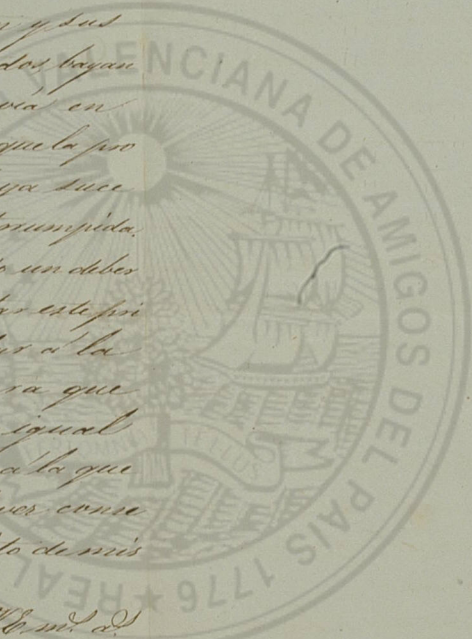 n y sus
dos, bayan
via, en
que la pro
ya suce
rrumpida.
o un deber
tar este pri
ar a la
ra que
igual
a la que
ver conse
to de mis
VE. ms. as.
REAL VALENCIANA DE AMIGOS DEL PAIS 1776 ★
TELLUS